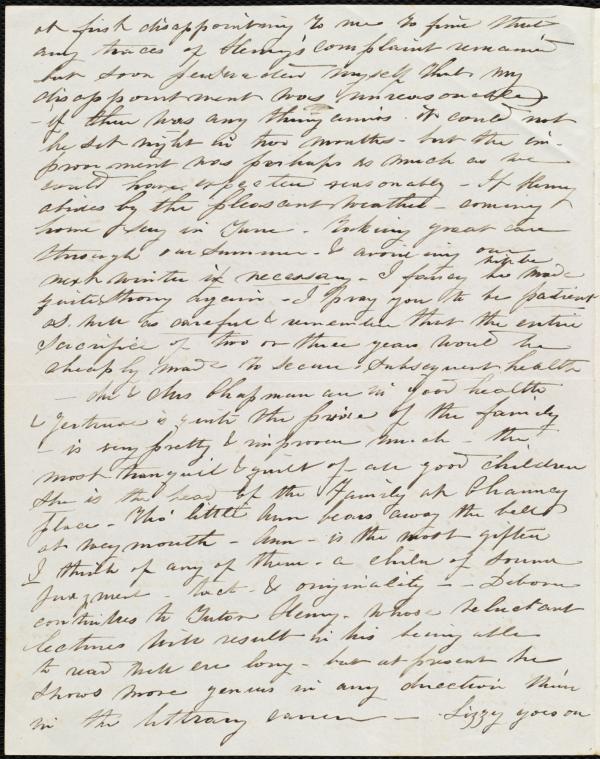 at first disappointing to me to find that
any traces of Henry's complaint remained
but soon persuaded myself that my
disappointment was unreasonable
- if there was any thing amiss it could not
be set right in two months - but the im-
provement was perhaps as much as we
could have expected reasonably - If Henry
abides by the pleasant weather - coming
home say in June - taking great care
through our summer - & avoiding our
next winter if necessary - I fancy he may be made
quite strong again - I pray you to be patient
as well as careful & remember that the entire
sacrifice of two or three years would be
cheaply made to secure subsequent health
- Mr & Mrs Chapman are in good health
& Gertrude is quite the pride of the family
- is very pretty & improves much - the
most tranquil & quiet of all good children
She is the head of the Family at Chauncy
Place - Tho' little Ann bears away the bell
at Weymouth - Ann - is the most gifted
I think of any of them - a child of sound
judgment - tact - & originality - - Deborah
continues to Tutor Henry - whose reluctant
lectures will result in his being able
to read well ere long - but at present he
shows more genius in any direction than
in the literary career - Lizzy goes on